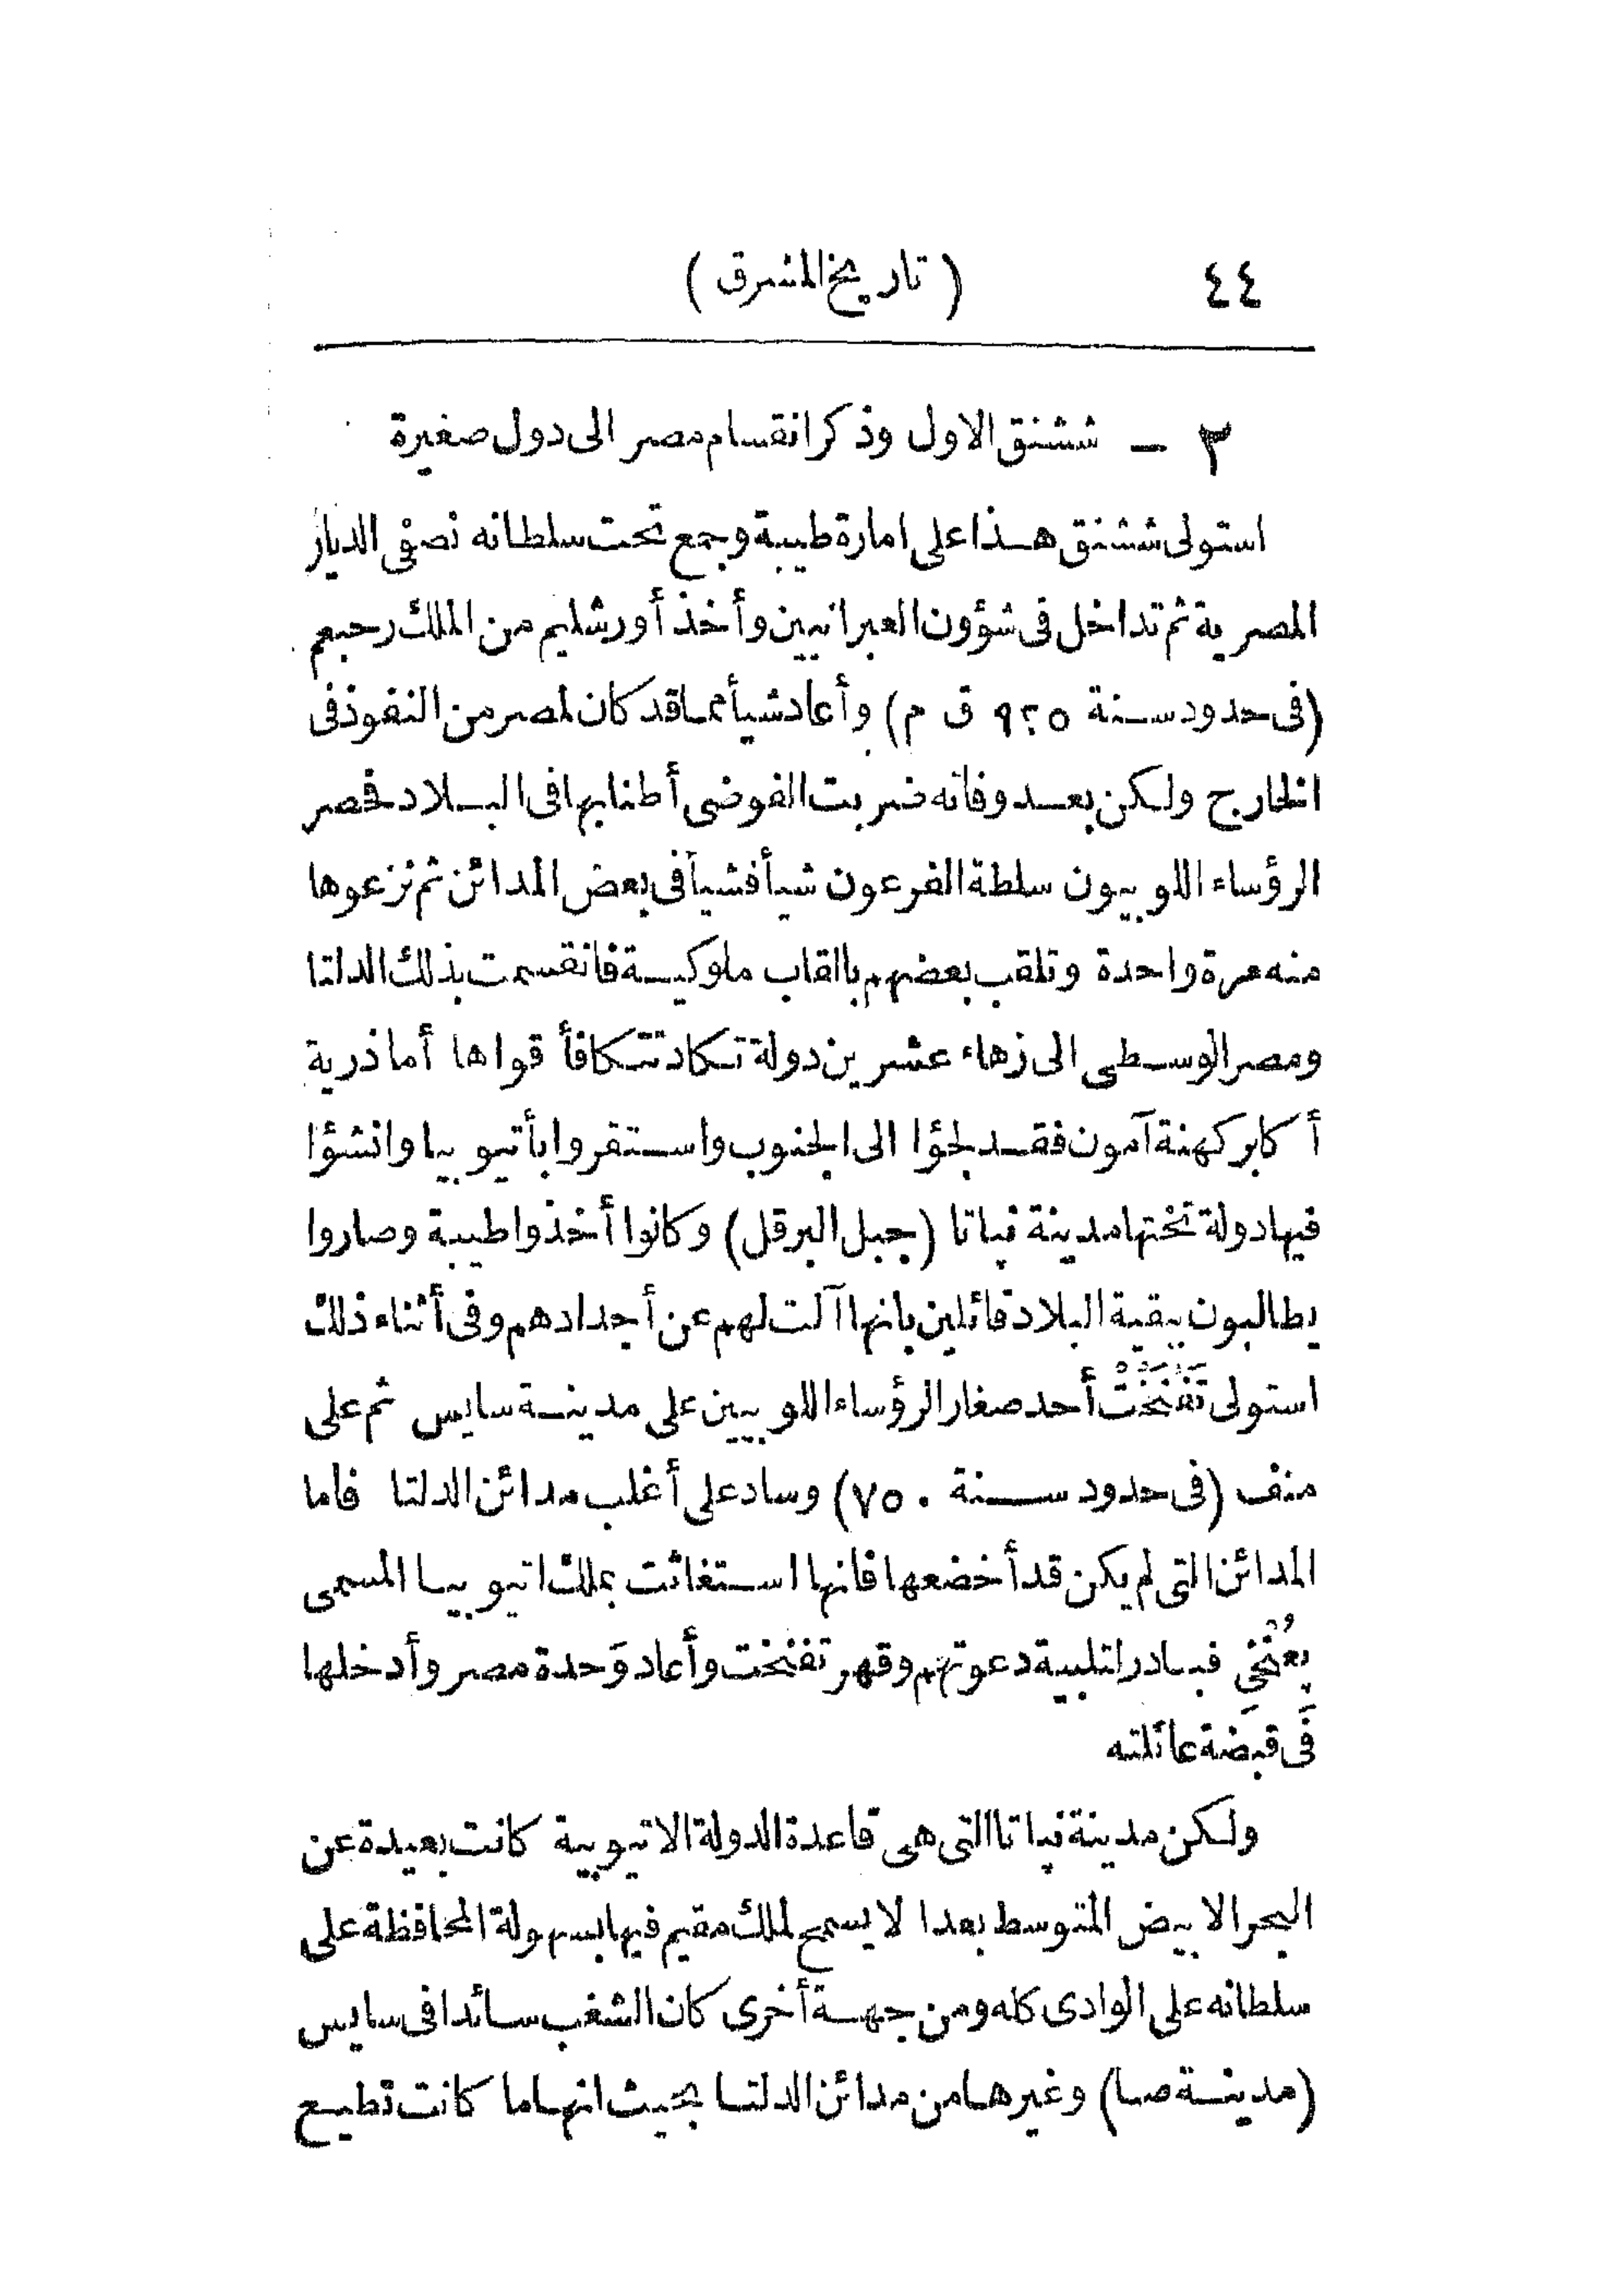 ٤٤ (تاريخ المشرق)
٣ — ششنق الاول وذكر انقسام مصر الى دول صغيرة
استولى ششنق هذا على امارة طيبة وجمع تحت سلطانه نصفى الديار
المصرية ثم تداخل فى شؤون العبرانيين وأخذ أورشليم من الملك رحبعم
(فى حدود سنة ٩٢٥ ق م) وأعاد شيأ مما قد كان لمصر من النفوذ فى
الخارج ولكن بعد وفاته ضربت الفوضى أطنابها فى البلاد فحصر
الرؤساء اللوبيون سلطة الفرعون شيأ فشيأ فى بعض المدائن ثم نزعوها
منه مرة واحدة وتلقب بعضهم بالقاب ملوكية فانقسمت بذلك الدلتا
ومصر الوسطى الى زهاء عشرين دولة تكاد تتكافأ قواها أما ذرية
أكابر كهنة آمون فقد لجؤا الى الجنوب واستقروا بأتيوبيا وانشؤا
فيها دولة تختها مدينة نپاتا (جبل البرقل) وكانوا أخذوا طيبة وصاروا
يطالبون ببقية البلاد قائلين بانها آلت لهم عن أجدادهم وفى أثناء ذلك
استولى تَفْنَخْتْ أحد صغار الرؤساء اللوبيين على مدينة سايس ثم على
منف (فى حدود سنة ٧٥٠) وساد على أغلب مدائن الدلتا فاما
المدائن التى لم يكن قد أخضعها فانها استغاثت بملك اتيوبيا المسمى
بِعُنْخِى فبادر لتلبية دعوتهم وقهر تفنخت وأعاد وَحدة مصر وأدخلها
فى قبضة عائلته
ولكن مدينة نپاتا التى هى قاعدة الدولة الاتيوبية كانت بعيدة عن
البحر الابيض المتوسط بعدا لا يسمح لملك مقيم فيها بسهولة المحافظة على
سلطانه على الوادى كله ومن جهة أخرى كان الشغب سائدا فى سايس
(مدينة صا) وغيرها من مدائن الدلتا بحيث انها ما كانت تطيع